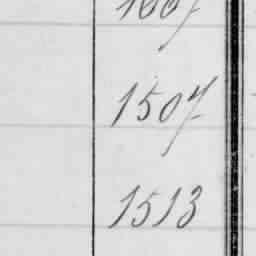 1507
1513